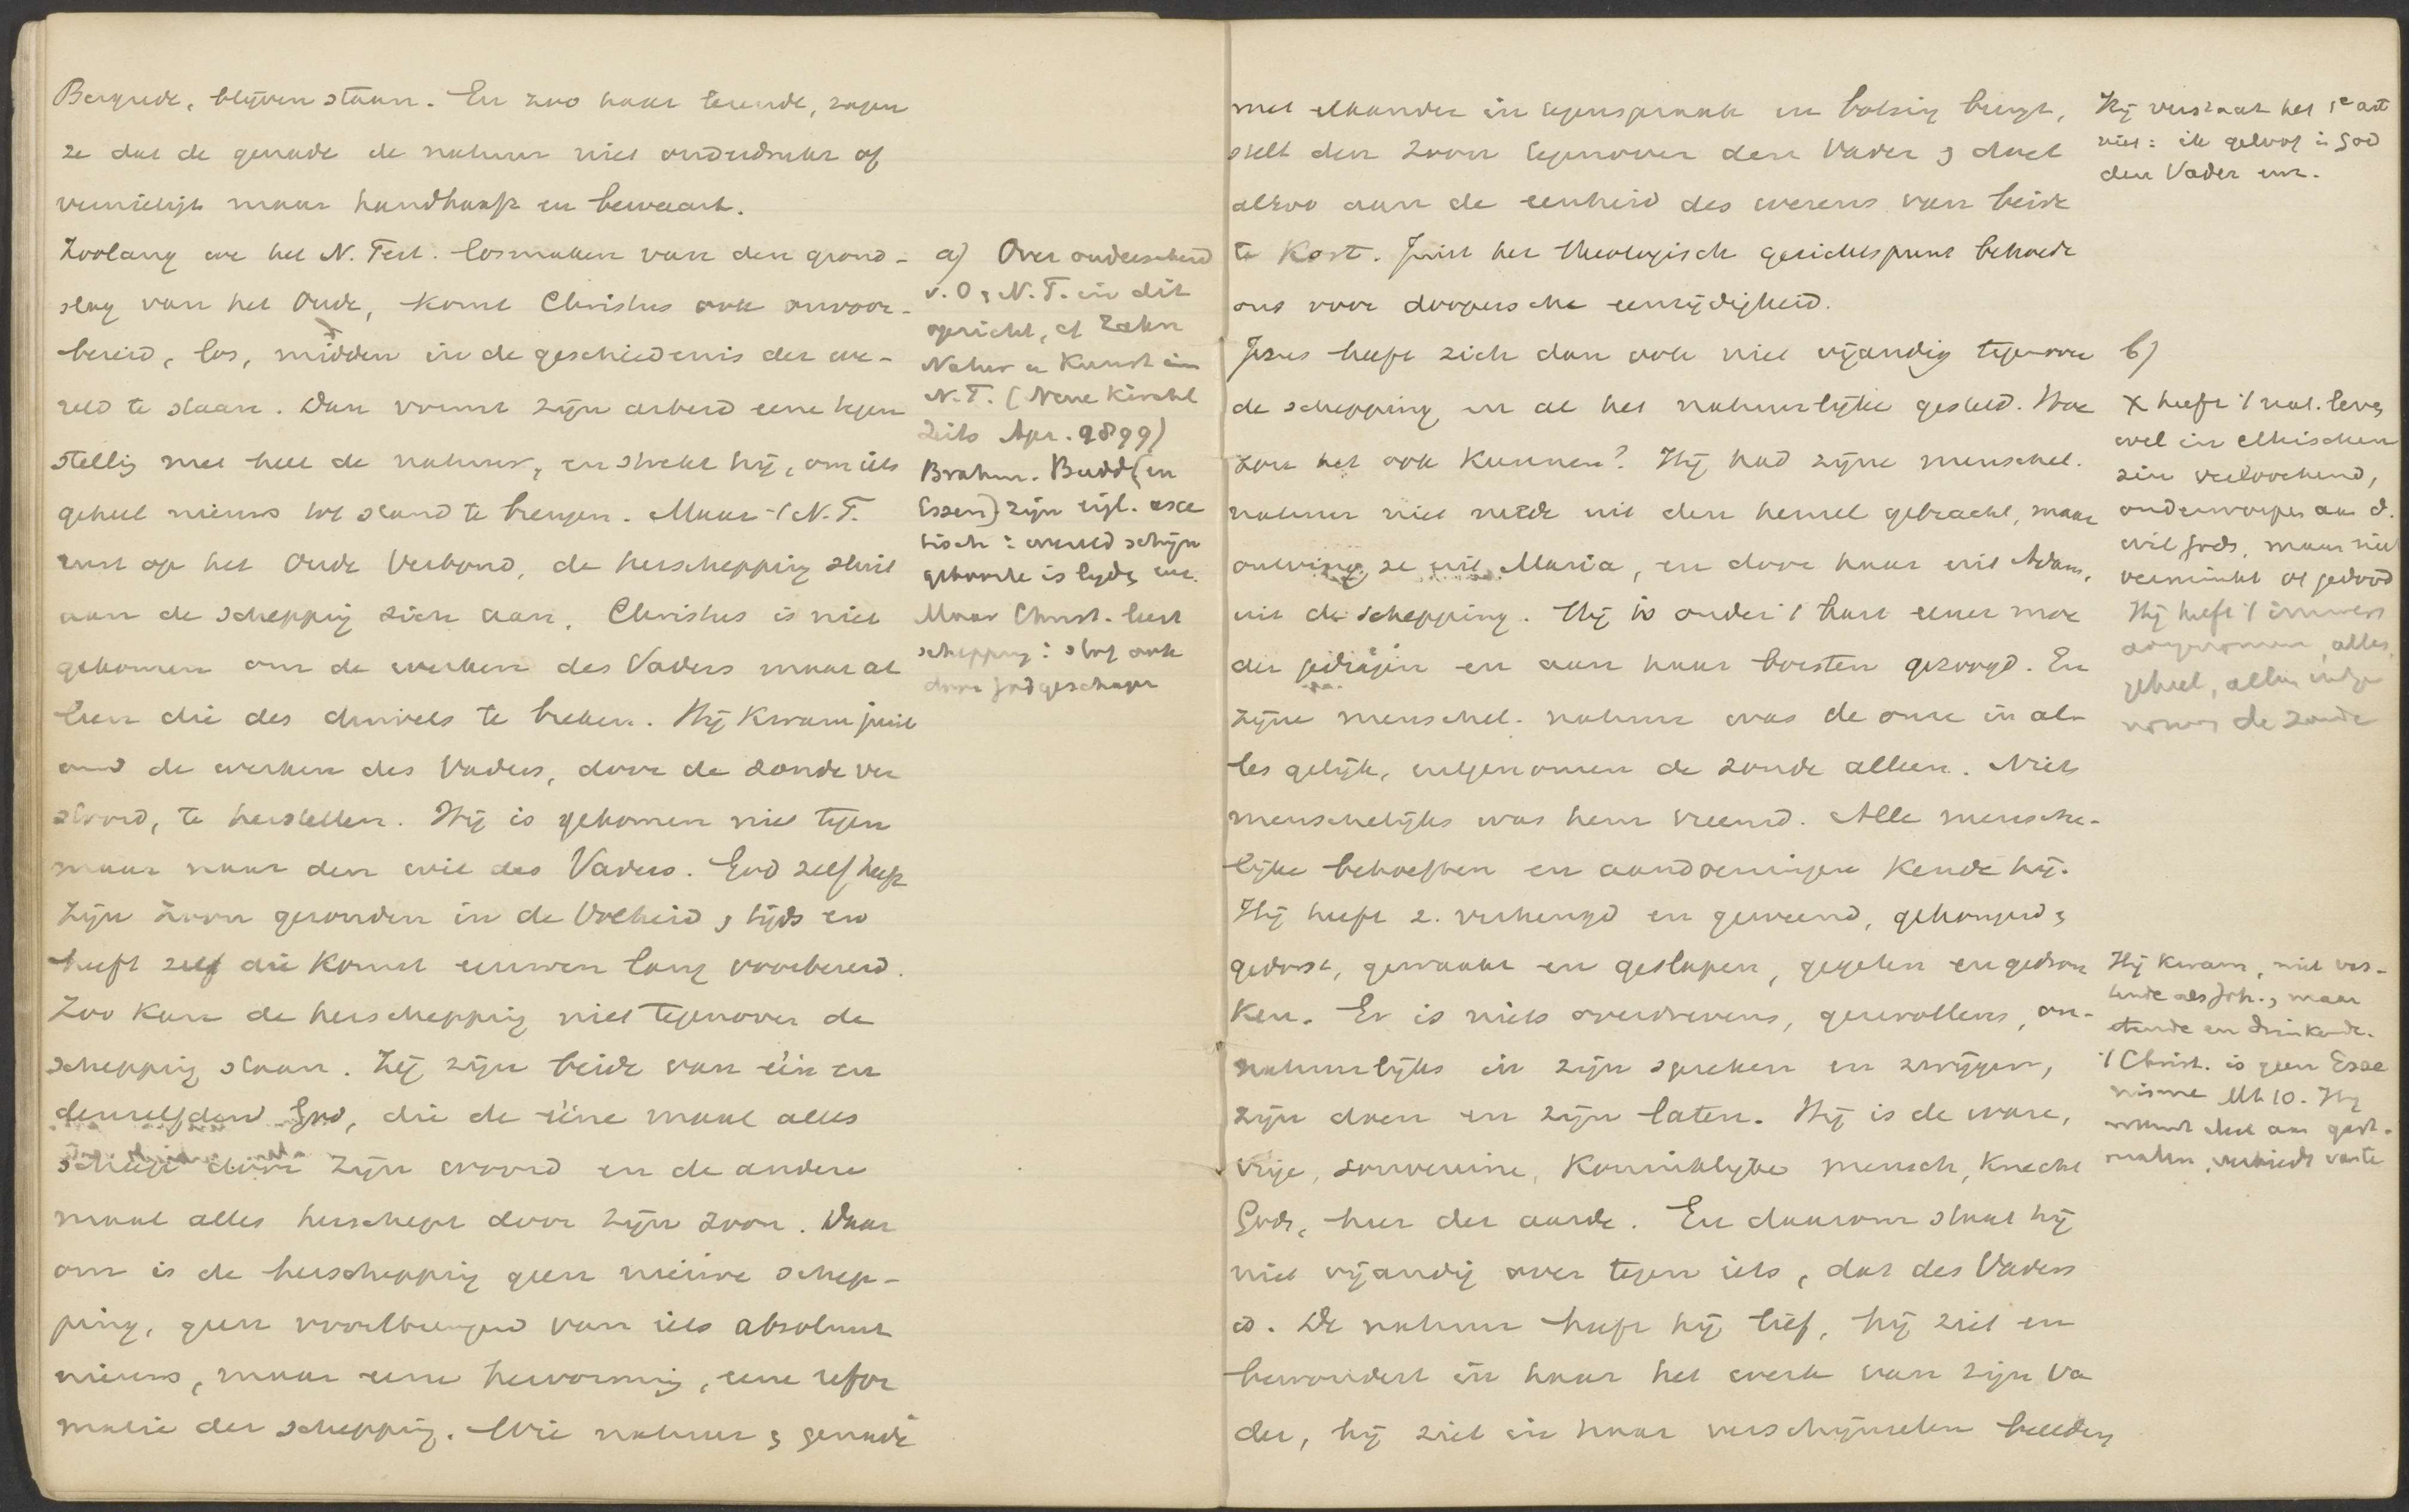 Bergrede, blijven staan. En zoo haar lerende, zagen
ze dat de genade de natuur niet onderdrukt of
vernietigt maar handhaaft en bewaart.
Zoolang we het N. Test. losmaken van den grond-
slag van het Oude, komt Christus ook onvoor-
bereid, los, midden in de geschiedenis der we-
reld te staan. Dan vormt zijn arbeid eene tegen
stelling met heel de natuur, en strekt hij, om iets
geheel nieuws tot stand te brengen. Maar 't N.T.
rust op het Oude Verbond, de herschepping sluit
aan de schepping zich aan. Christus is niet
gekomen om de werken des Vaders maar al
leen die des duivels te breken. Hij kwam juist
om de werken des Vaders, door de zonde ver
stoord, te herstellen. Hij is gekomen niet tegen
maar naar den wil des Vaders. God zelf heeft
zijn Zoon gezonden in de Volheid d tijds en
heeft zelf die komst eeuwen lang voorbereid.
Zoo kan de herschepping niet tegenover de
schepping staan. Zij zijn beide van één en
denzelfden God, die de ééne maal alles
schiep door zijn woord en de andere
maal alles herschept door zijn Zoon. Daar
om is de herschepping geen nieuwe schep-
ping, geen voortbrengen van iets absoluut
nieuws, maar eene hervorming, eene refor
matie der schepping. Wie natuur & genade
a) Over onderscheid
v. O & N.T. in dit
opzicht, cf Zahn
Natur u Kunst im
N.T. (Neue Kirchl
Zeits Apr. 1899)
Brahm. Budd (en
Essen) zijn eigl. asce
tisch: wereld schijn
geboorte is lijden enz.
Maar Christ. leert
schepping: stof ook
door God geschapen
met elkander in tegenspraak en botsing brengt,
stelt den Zoon tegenover den Vader & doet
alzoo aan de eenheid des wezens van beide
te kort. Juist het theologisch gezichtspunt behoede
ons voor doopersche eenzijdigheid.
Jezus heeft zich dan ook niet vijandig tegenover
de schepping en al het natuurlijke gesteld. Hoe
zou het ook kunnen? Hij had zijne menschel.
natuur niet mede uit den hemel gebracht, maar
ontving ze uit Maria, en door haar uit Adam,
uit de schepping. Hij is onder 't hart eener moe
der gedragen en aan haar borsten gezoogd. En
zijne menschel. natuur was de onze in al-
les gelijk, uitgenomen de zonde alleen. Niets
menschelijks was hem vreemd. Alle mensche-
lijke behoeften en aandoeningen kende hij.
Hij heeft z. verheugd en geweend, gehongerd &
gedorst, gewaakt en geslapen, gegeten en gedron
ken. Er is niets overdrevens, gezwollens, on-
natuurlijks in zijn spreken en zwijgen,
zijn doen en zijn laten. Hij is de ware,
vrije, souvereine, koninklijke mensch, knecht
Gods, heer der aarde. En daarom staat hij
niet vijandig over tegen iets, dat des Vaders
is. De natuur heeft hij lief, hij ziet en
bewondert in haar het werk van zijn Va
der, hij ziet in haar verschijnselen beelden
Hij verstaat het 1e art
niet: ik geloof in God
den Vader enz.
b)
X heeft 't nat. leven
wel in ethischen
zin verloochend,
onderworpen aan d.
wil Gods, maar niet
verminkt of gedood
Hij heeft 't immers
aangenomen, alles,
geheel, alleen uitge
nomen de zonde
Hij kwam, niet vas-
tende als Joh., maar
etende en drinkende.
't Christ. is geen Esse
nisme Mt 10. Hij
neemt deel aan gast-
malen, verbiedt vasten